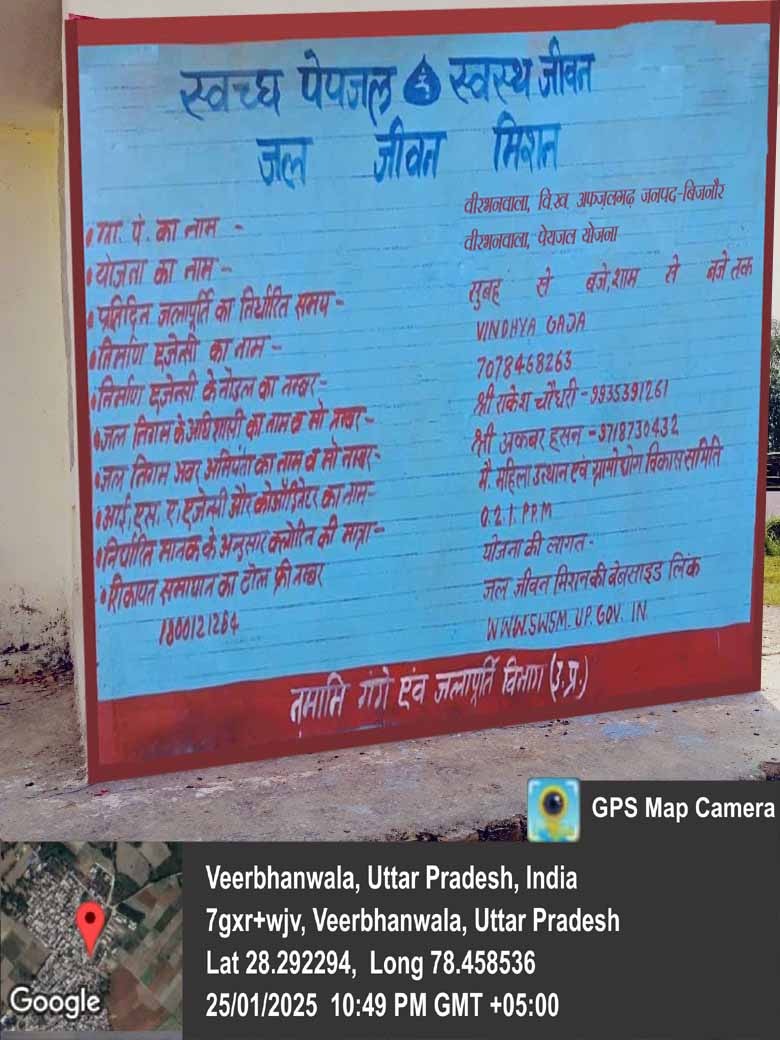 स्वच्छ पेयजल स्वस्थ जीवन
जल जीवन मिशन
ग्रा. पं. का नाम - वीरभनवाला, वि.ख. अफजलगढ़ जनपद-बिजनौर
योजना का नाम - वीरभनवाला, पेयजल योजना
प्रतिदिन जलापूर्ति का निर्धारित समय - सुबह से बजे, शाम से बजे तक
निर्माण एजेन्सी का नाम - VINDHYA GAJA
निर्माण एजेन्सी के नोडल का नम्बर- 7078468263
जल निगम के अधिशासी का नाम व मो नम्बर- श्री राकेश चौधरी - 9935391261
जल निगम अवर अभियंता का नाम व मो नम्बर- श्री अकबर हसन - 9718730432
आई. एस. ए. एजेन्सी और कोऑर्डिनेटर का नाम- मै. महिला उत्थान एवं ग्रामोद्योग विकास समिति
निर्धारित मानक के अनुसार क्लोरिन की मात्रा- 0.2 I. P.P.M
शिकायत समाधान का टोल फ्री नम्बर
1800121284
योजना की लागत -
जल जीवन मिशन की बेबसाइड लिंक
WWW.SWSM.UP.GOV.IN
नमामि गंगे एंव जलापूर्ति विभाग (उ.प्र.)
GPS Map Camera
Veerbhanwala, Uttar Pradesh, India
7gxr+wjv, Veerbhanwala, Uttar Pradesh
Lat 28.292294, Long 78.458536
25/01/2025 10:49 PM GMT +05:00
Google